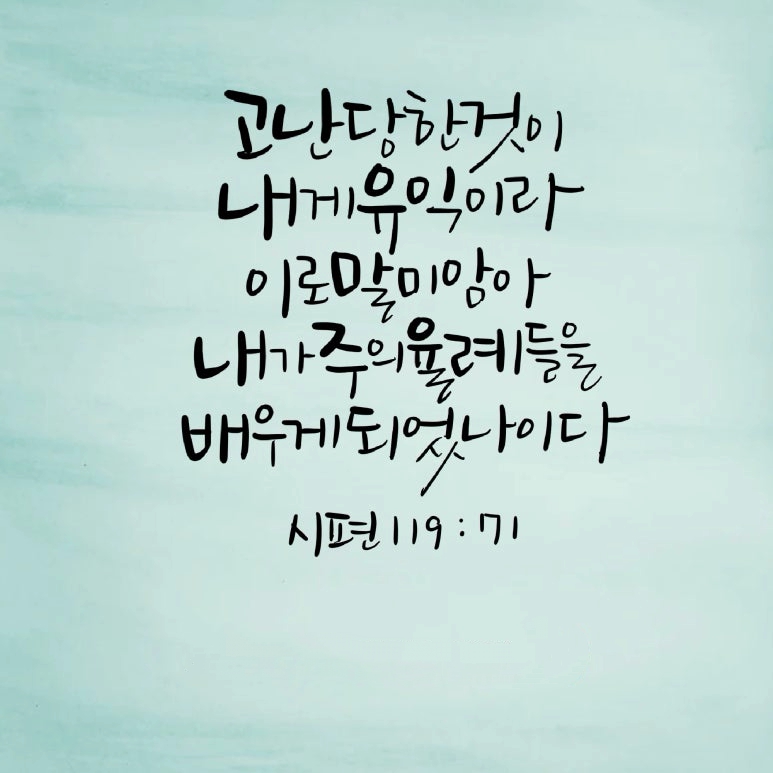 고난당한것이
내게유익이라
이로말미암아
내가주의율례들을
배우게되었나이다
시편119:71